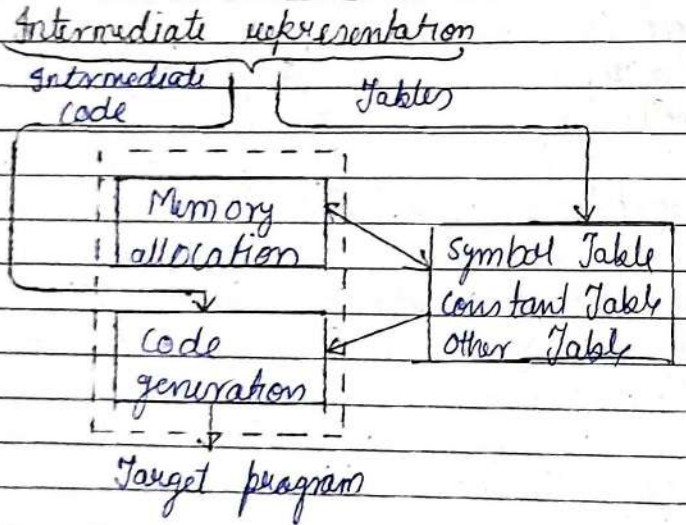 Intermediate representation
Intermediate
Code
Tables
Memory
allocation
Symbol Table
Constant Table
Other Table
Code
generation
Target program